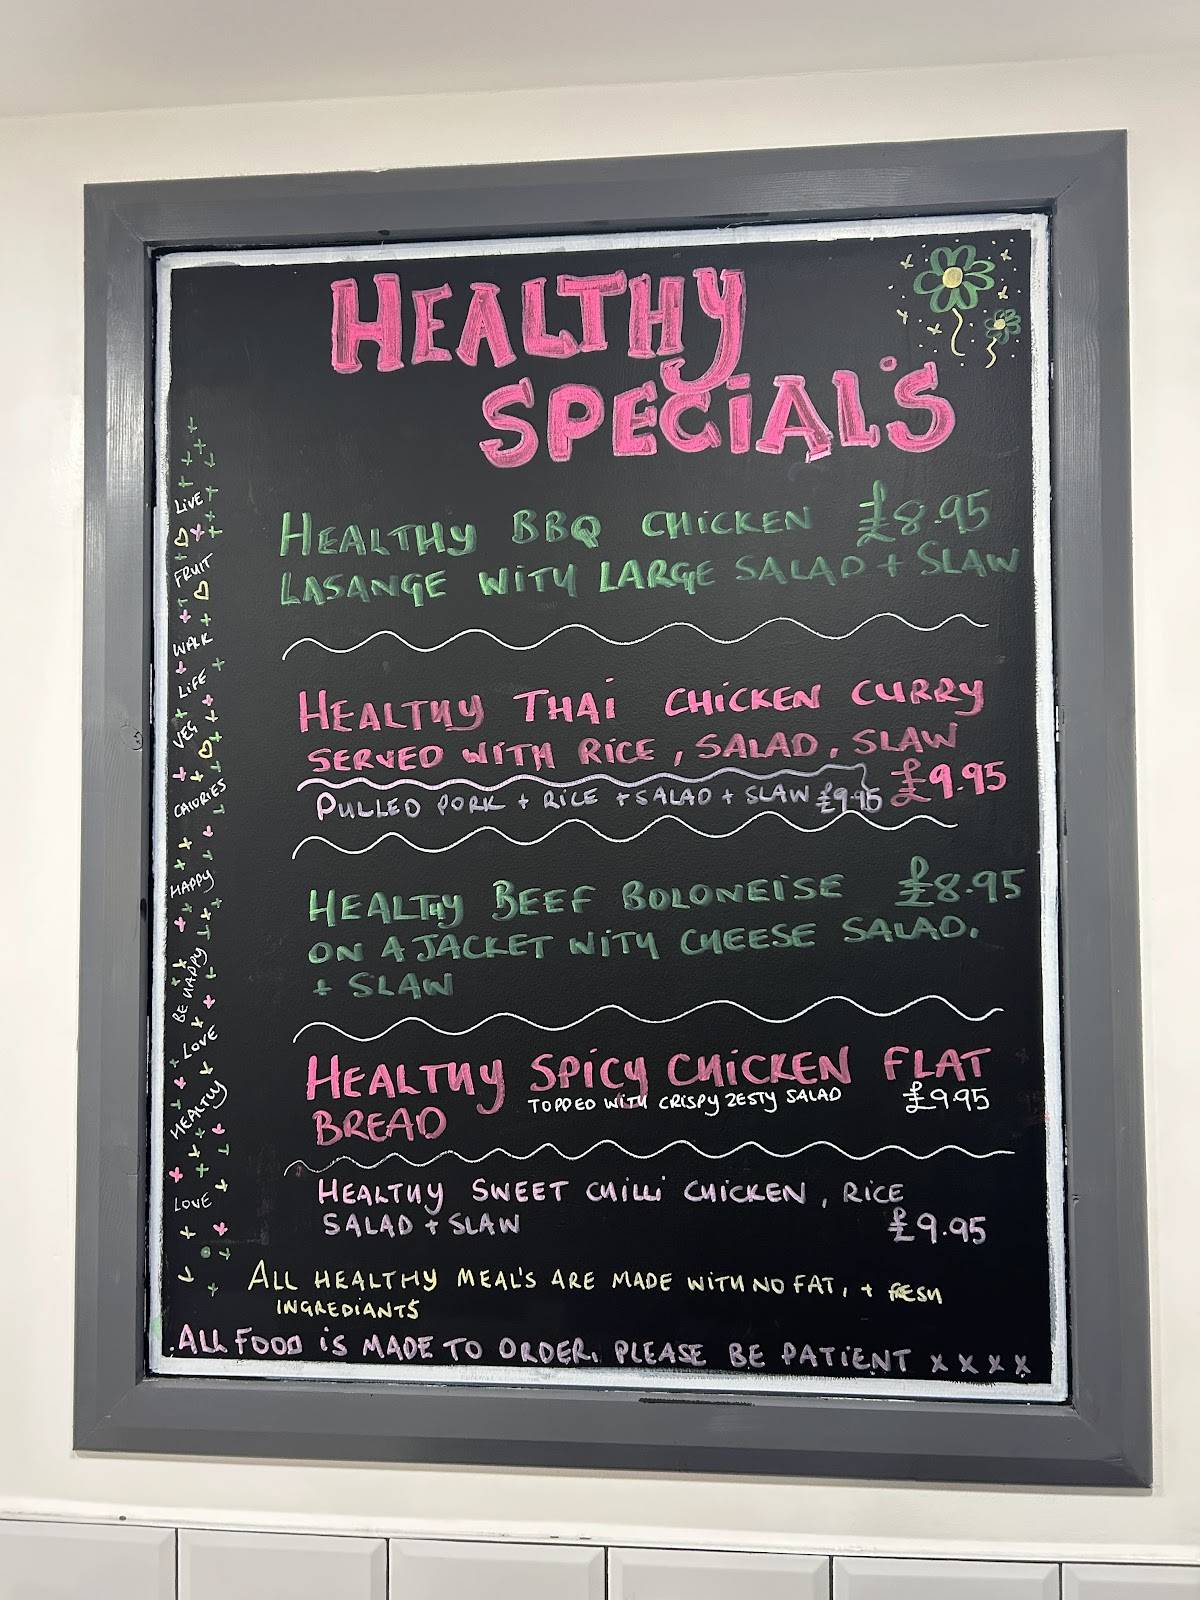 HEALTHY
SPECIAL'S
HEALTHY BBQ CHICKEN £8.95
LASANGE WITH LARGE SALAD + SLAW
HEALTHY THAI CHICKEN CURRY
SERVED WITH RICE, SALAD, SLAW
£9.95
PULLED PORK + RICE + SALAD + SLAW £9.95
HEALTHY BEEF BOLONEISE £8.95
ON A JACKET WITH CHEESE SALAD,
+ SLAW
HEALTHY SPICY CHICKEN FLAT
BREAD
TOPPED WITH CRISPY ZESTY SALAD £9.95
HEALTHY SWEET CHILLI CHICKEN, RICE
SALAD + SLAW £9.95
ALL HEALTHY MEAL'S ARE MADE WITH NO FAT, + FRESH
INGREDIANTS
ALL FOOD IS MADE TO ORDER, PLEASE BE PATIENT x x x x
LIVE
FRUIT
WALK
LIFE
VEG
CALORIES
HAPPY
BE HAPPY
LOVE
HEALTHY
LOVE